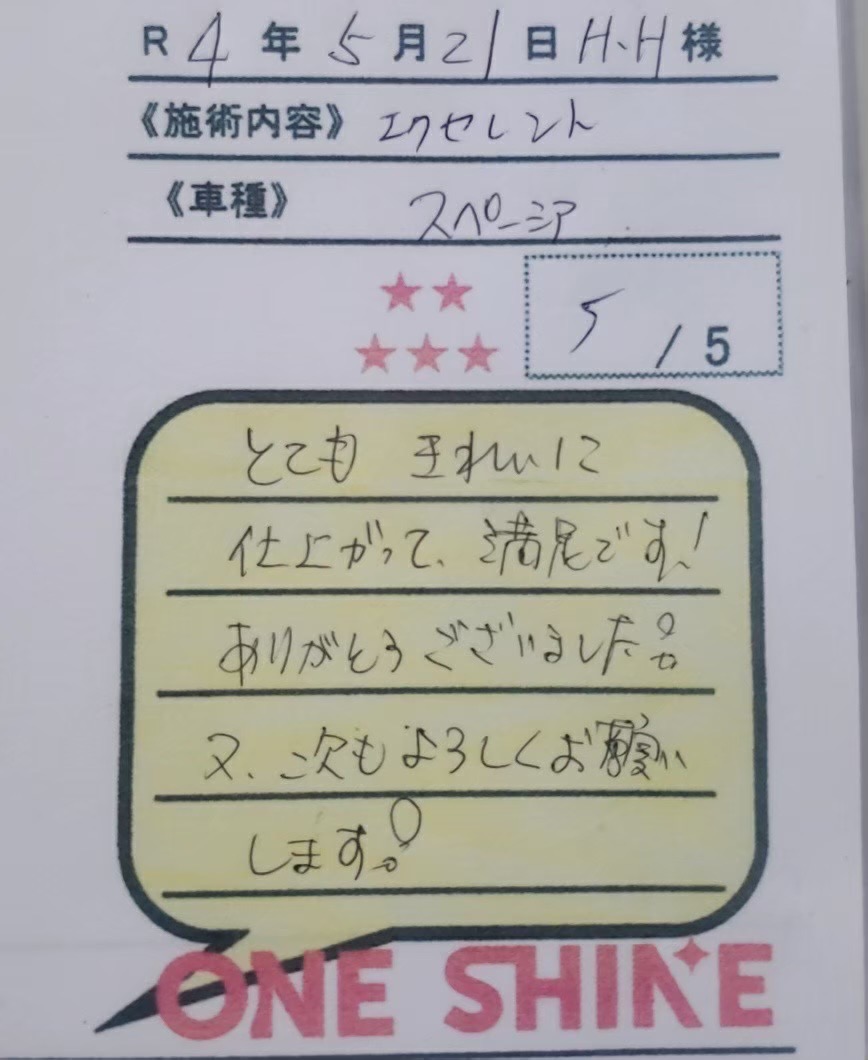 R 4 年 5 月 21 日 H.H 様
《施術内容》 エクセレント
《車種》 スペーシア
5 / 5
とても きれいに
仕上がって、満足です!
ありがとうございました!
又、次もよろしくお願い
します!
ONE SHINE